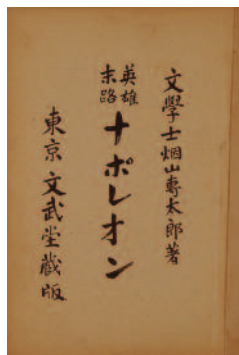 文學士烟山專太郎著
英雄
末路
ナポレオン
東京文武堂蔵版